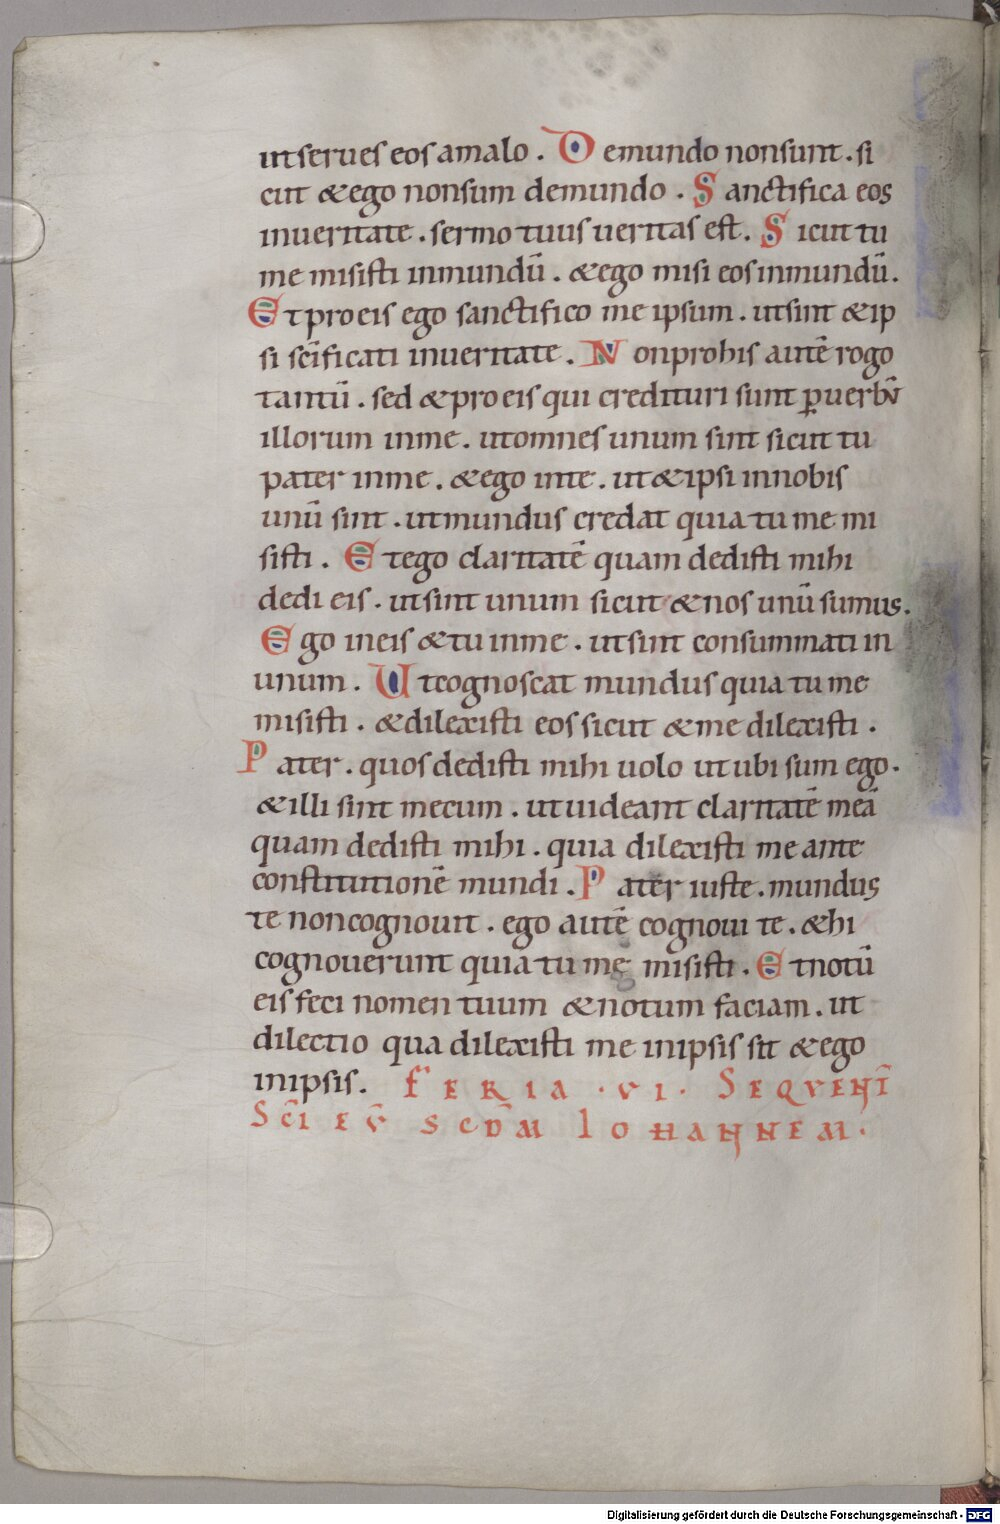 ut serues eos a malo . De mundo non sunt . si
cut & ego non sum de mundo . Sanctifica eos
in ueritate . sermo tuus ueritas est . Sicut tu
me misisti in mundū . & ego misi eos in mundū .
Et pro eis ego sanctifico me ipsum . ut sint & ip
si sc̄ificati in ueritate . Non pro his autē rogo
tantū . sed & pro eis qui credituri sunt ꝑ uerbū
illorum in me . ut omnes unum sint sicut tu
pater in me . & ego in te . ut & ipsi in nobis
unū sint . ut mundus credat quia tu me mi
sisti . Et ego claritatē quam dedisti mihi
dedi eis . ut sint unum sicut & nos unū sumus .
Ego in eis & tu in me . ut sint consummati in
unum . Ut cognoscat mundus quia tu me
misisti . & dilexisti eos sicut & me dilexisti .
Pater . quos dedisti mihi uolo ut ubi sum ego .
& illi sint mecum . ut uideant claritatē meā
quam dedisti mihi . quia dilexisti me ante
constitutionē mundi . Pater iuste . mundus
te non cognouit . ego autē cognoui te . & hi
cognouerunt quia tu me misisti . Et notū
eis feci nomen tuum & notum faciam . ut
dilectio qua dilexisti me in ipsis sit & ego
in ipsis . FERIA . VI . SEQVENT̄
SC̄I EV̄ SCDM̄ IOHANNEM .
Digitalisierung gefördert durch die Deutsche Forschungsgemeinschaft - DFG